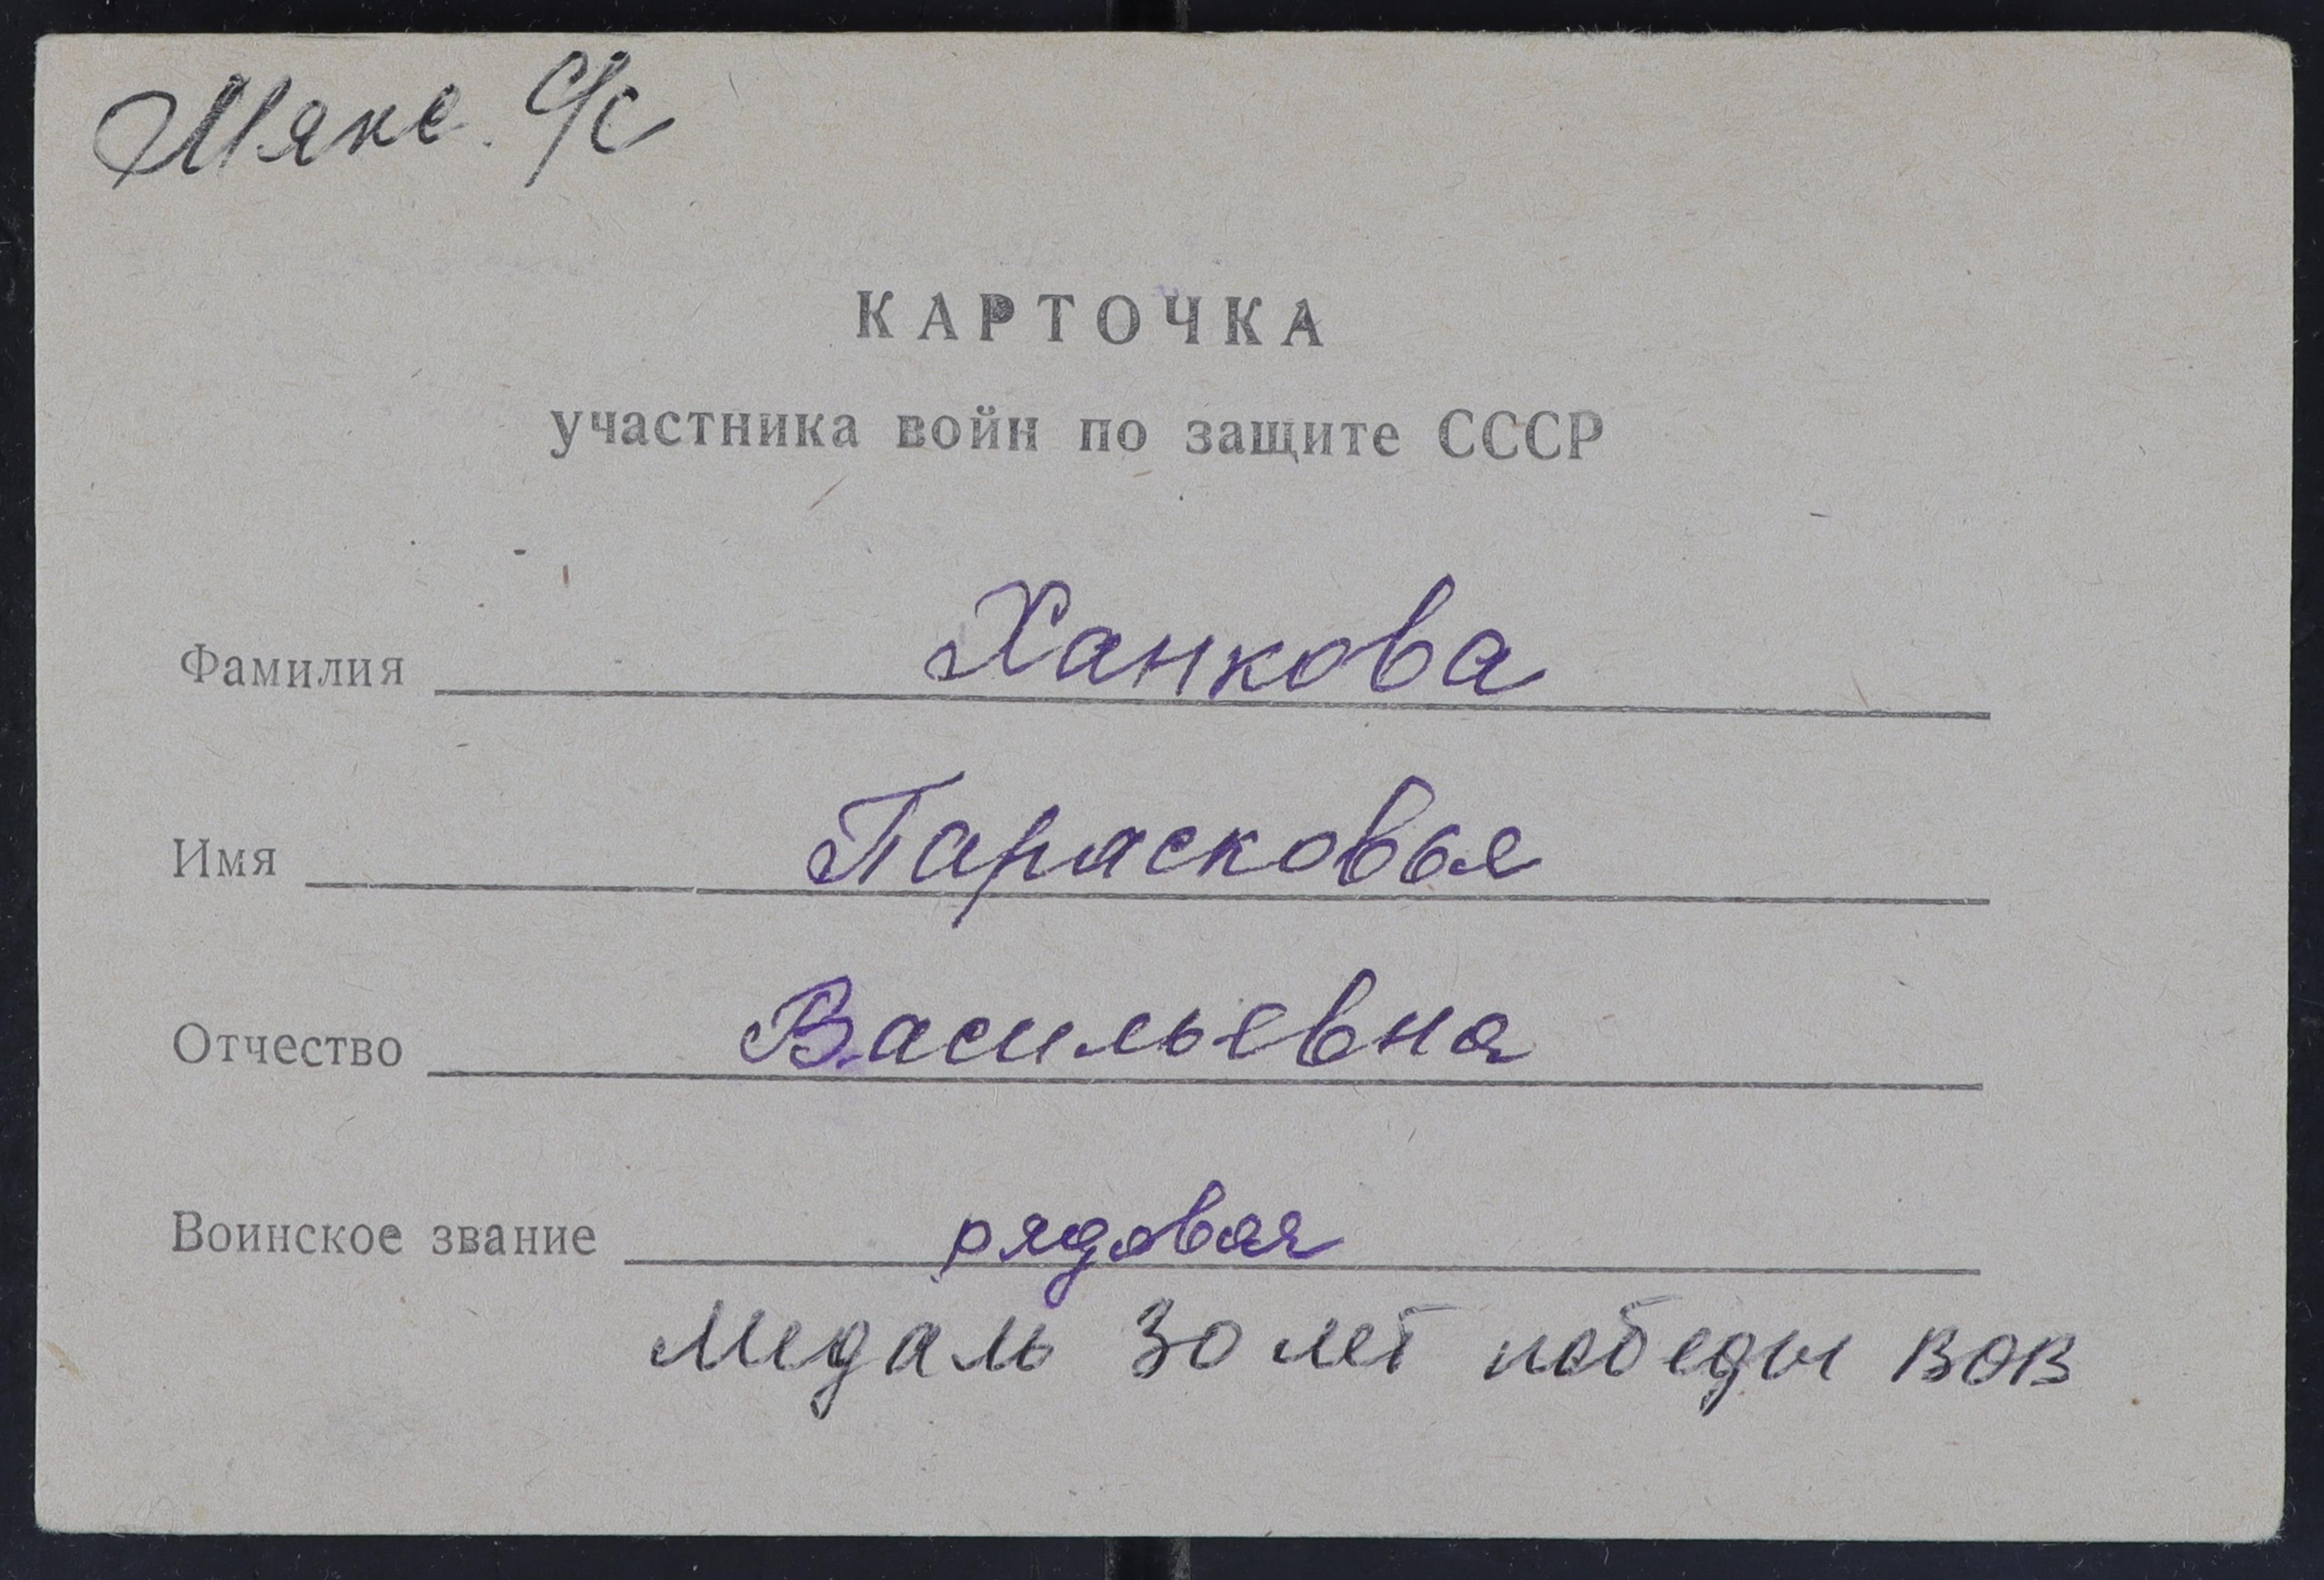 Мякс. с/с
КАРТОЧКА
участника войн по защите СССР
Фамилия Ханкова
Имя Парасковья
Отчество Васильевна
Воинское звание рядовая
Медаль 30 лет победы ВОВ